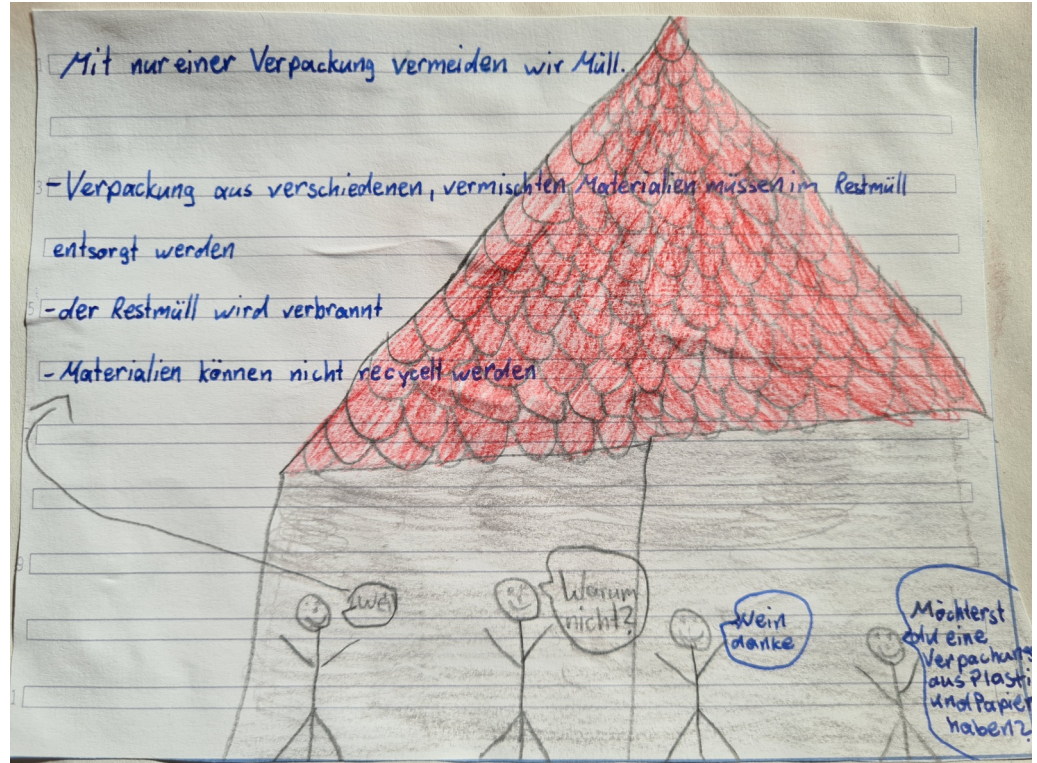 Mit nur einer Verpackung vermeiden wir Müll.
- Verpackung aus verschiedenen, vermischten Materialien müssen im Restmüll
entsorgt werden
- der Restmüll wird verbrannt
- Materialien können nicht recycelt werden
Warum
nicht?
Nein
danke
Möchterst
du eine
Verpackung
aus Plasti
und Papier
haben?